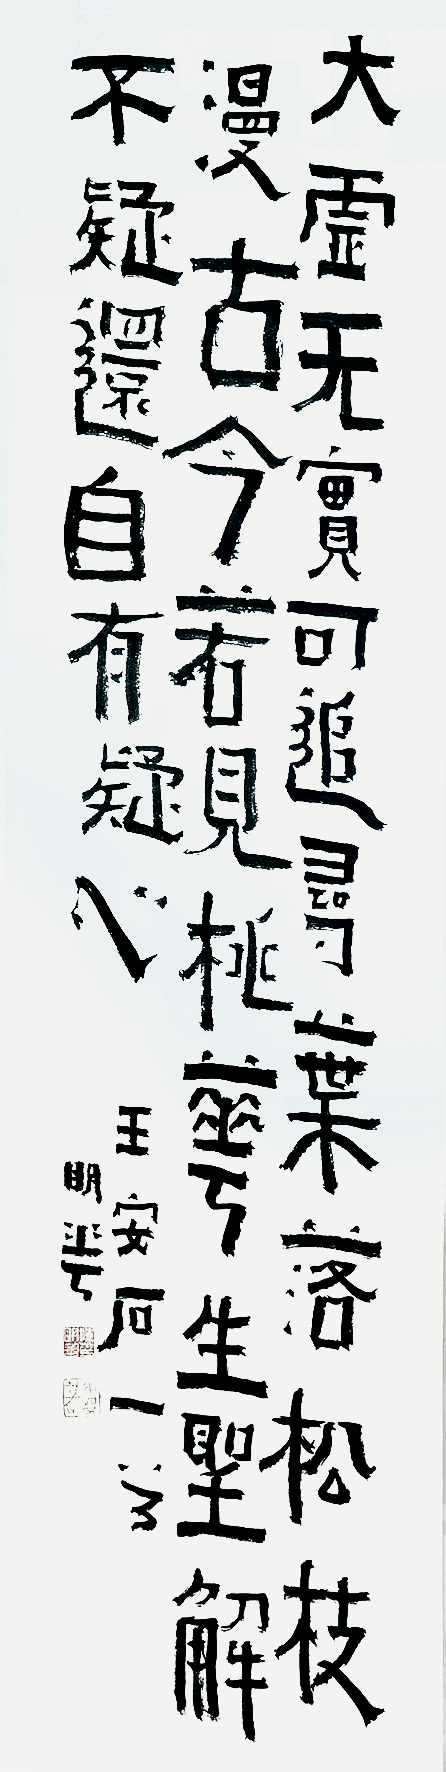 大虛无實可追尋葉落松枝
漫古今若見桃華生聖解
不疑還自有疑心
王安石一首
明華